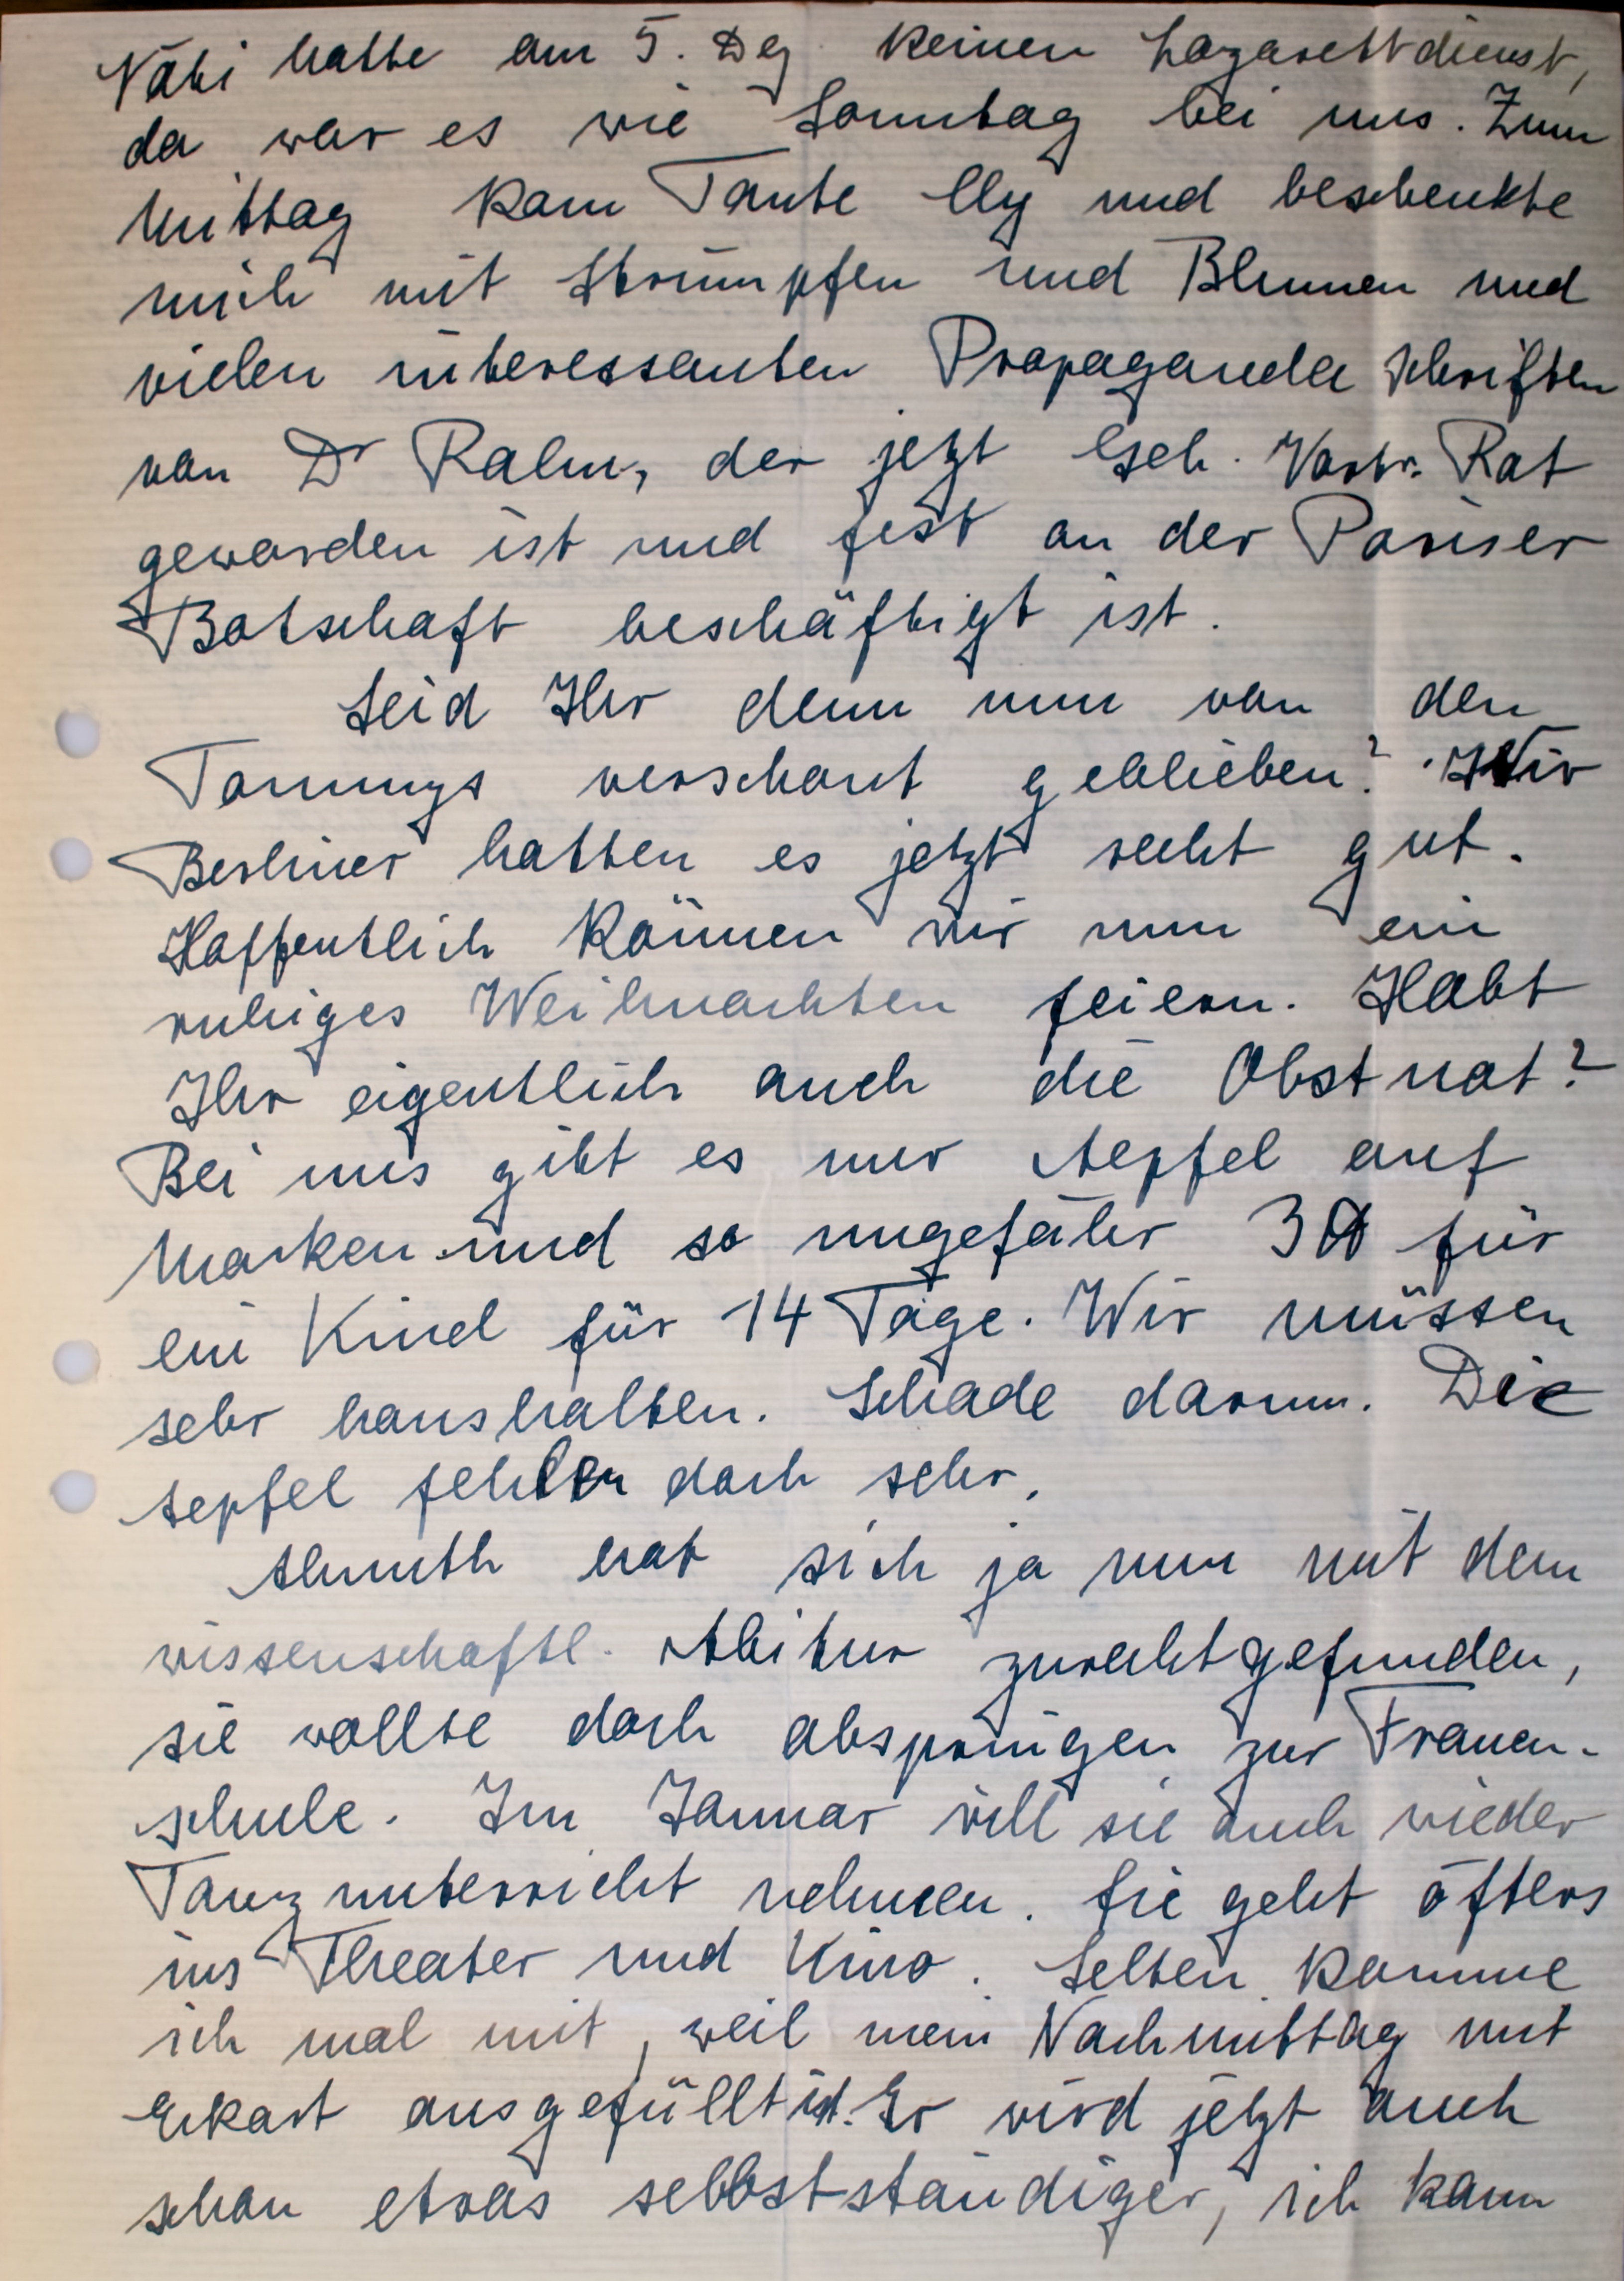 Väti hatte am 5. Dez. keinen Lazarettdienst,
da war es wie Sonntag bei uns. Zum
Mittag kam Tante Elly und beschenkte
mich mit Strümpfen und Blumen und
vielen interessanten Propaganda Schriften
von Dr Rahn, der jetzt Geh. Vortr. Rat
geworden ist und fest an der Pariser
Botschaft beschäftigt ist.
Seid Ihr denn nun von den
Tommys verschont geblieben? Wir
Berliner hatten es jetzt recht gut.
Hoffentlich können wir nun ein
ruhiges Weihnachten feiern. Habt
Ihr eigentlich auch die Obstnot?
Bei uns gibt es nur Aepfel auf
Marken und so ungefähr 3 ℔ für
ein Kind für 14 Tage. Wir müssen
sehr haushalten. Schade darum. Die
Aepfel fehlen doch sehr.
Almuth hat sich ja nun mit dem
wissenschaftl. Abitur zurechtgefunden,
sie wollte doch abspringen zur Frauen-
schule. Im Januar will sie auch wieder
Tanzunterricht nehmen. Sie geht öfters
ins Theater und Kino. Selten komme
ich mal mit, weil mein Nachmittag mit
Eckart ausgefüllt ist. Er wird jetzt auch
schon etwas selbstständiger, ich kann